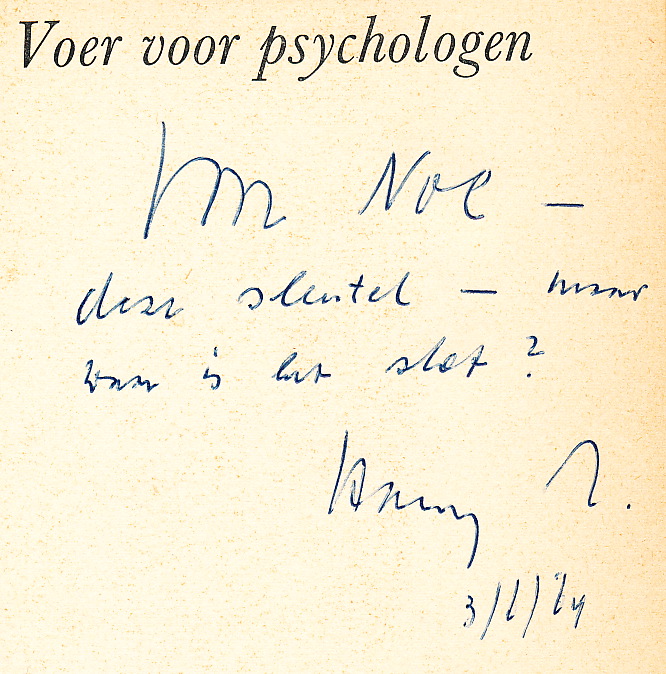 Voer voor psychologen
Voor Noe —
deze sleutel — maar
waar is het slot?
Harry M.